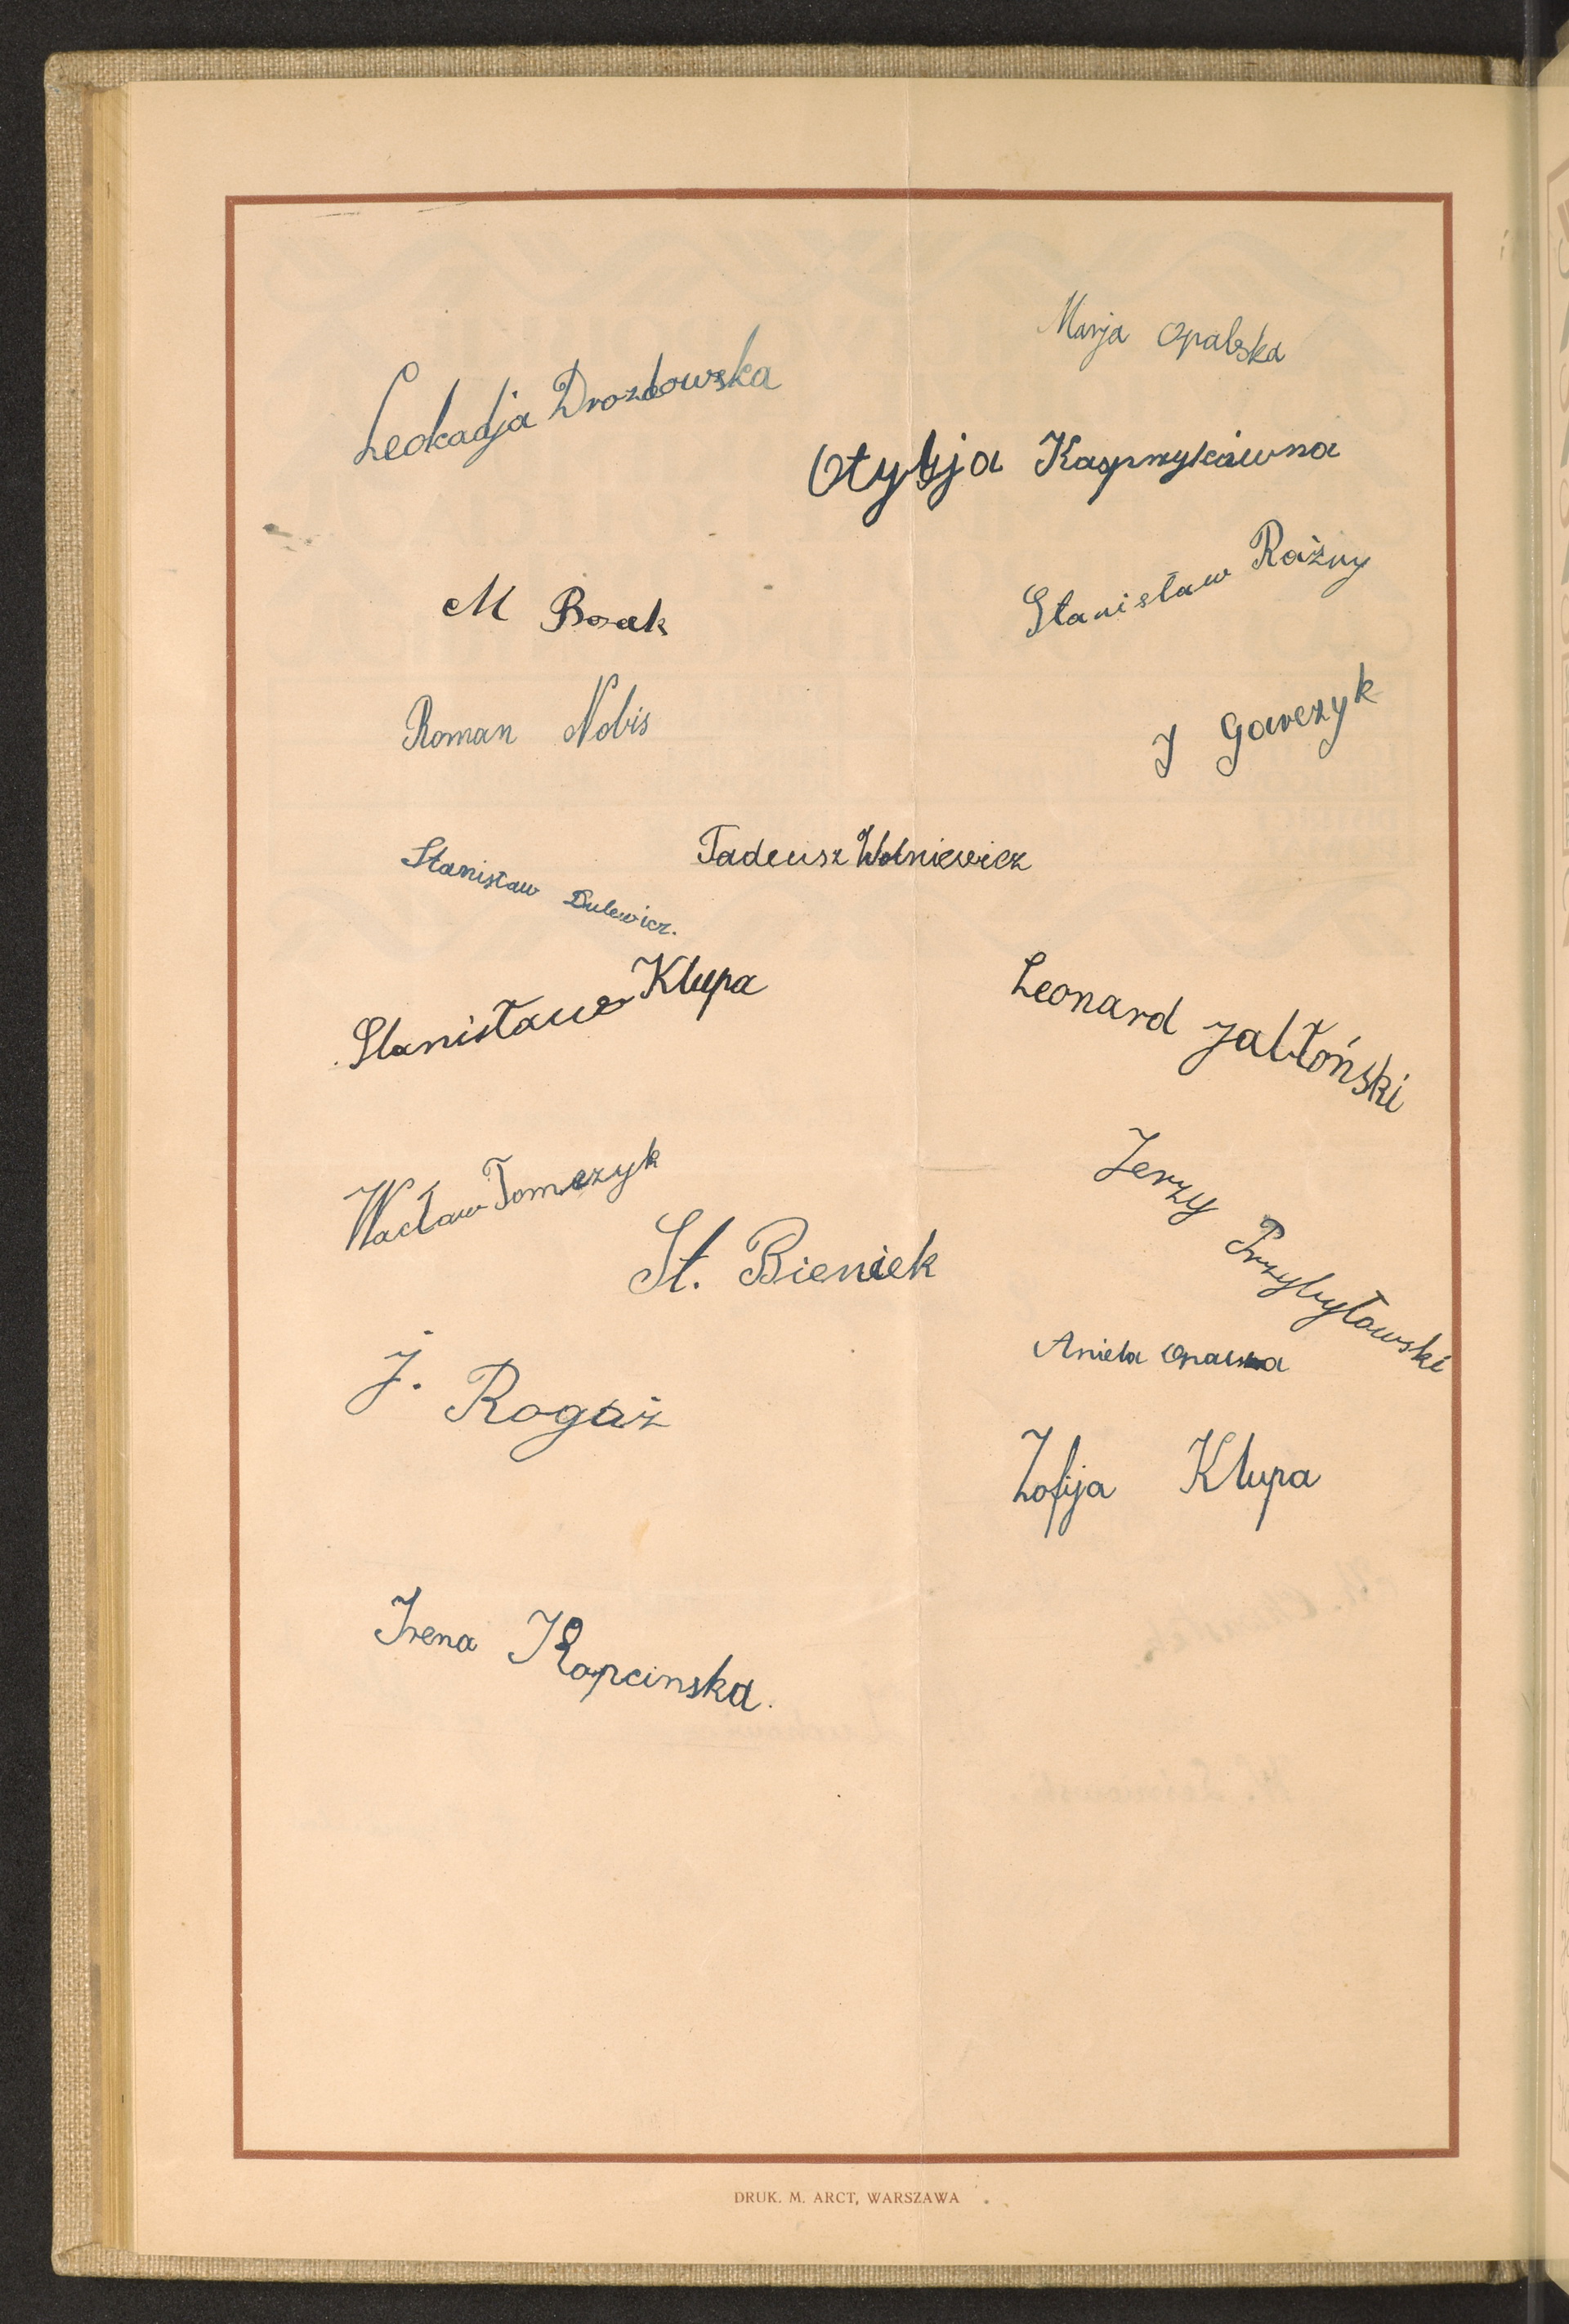 Marja Opalska
Leokadja Drozdowska
Otylja Kasprzykówna
Stanisław Rożny
M Bosak
Roman Nobis
J Gawczyk
Tadeusz Wolniewicz
Stanisław Dulewicz.
Stanisława Klupa
Leonard Jabłoński
Wacław Tomczyk
Jerzy Przybyłowski
St. Bieniek
Aniela Opalska
J. Rogaż
Zofija Klupa
Irena Kapcinska.
DRUK. M. ARCT, WARSZAWA